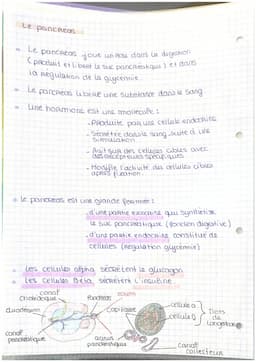 Le pancréas
Le pancréas joue un rôle dans la digestion
(produit et libère le suc pancréatique) et dans
la régulation de la glycémie.
Le pancréas libère une substance dans le sang
Une hormone est une molécule :
- Produite par une cellule endocrine
- Sécrétée dans le sang suite à une
stimulation
- Agit sur des cellules cibles avec
des récepteurs spécifiques
- Modifie l'activité des cellules cibles
après fixation
le pancréas est une glande formée :
- d'une partie exocrine qui synthétise
le suc pancréatique (fonction digestive)
- d'une partie endocrine constituée de
cellules (régulation glycémie)
Les cellules alpha sécrètent le glucagon.
Les cellules Bêta sécrètent l'insuline.
canal
cholédoque
Pancréas
duodénum
capillaire
cellule α
cellule β
îlots de
Langerhans
canal
pancréatique
acinus
pancréatique
canal
collecteur